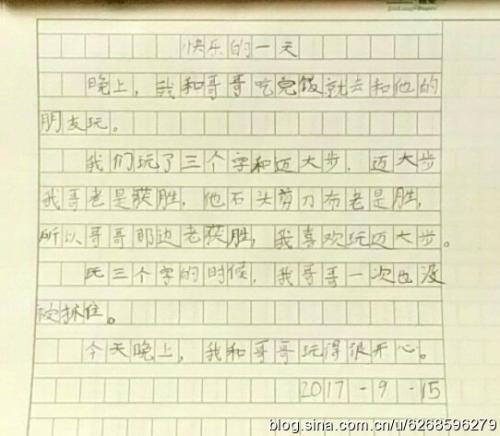 快乐的一天
晚上，我和哥哥吃完饭就去和他的
朋友玩。
我们玩了三个字和迈大步．迈大步
我哥老是获胜，他石头剪刀布老是胜，
所以哥哥那边老获胜，我喜欢玩迈大步。
玩三个字的时候，我哥哥一次也没
被抓住。
今天晚上，我和哥哥玩得很开心。
2017-9-15
blog.sina.com.cn/u/6268596279